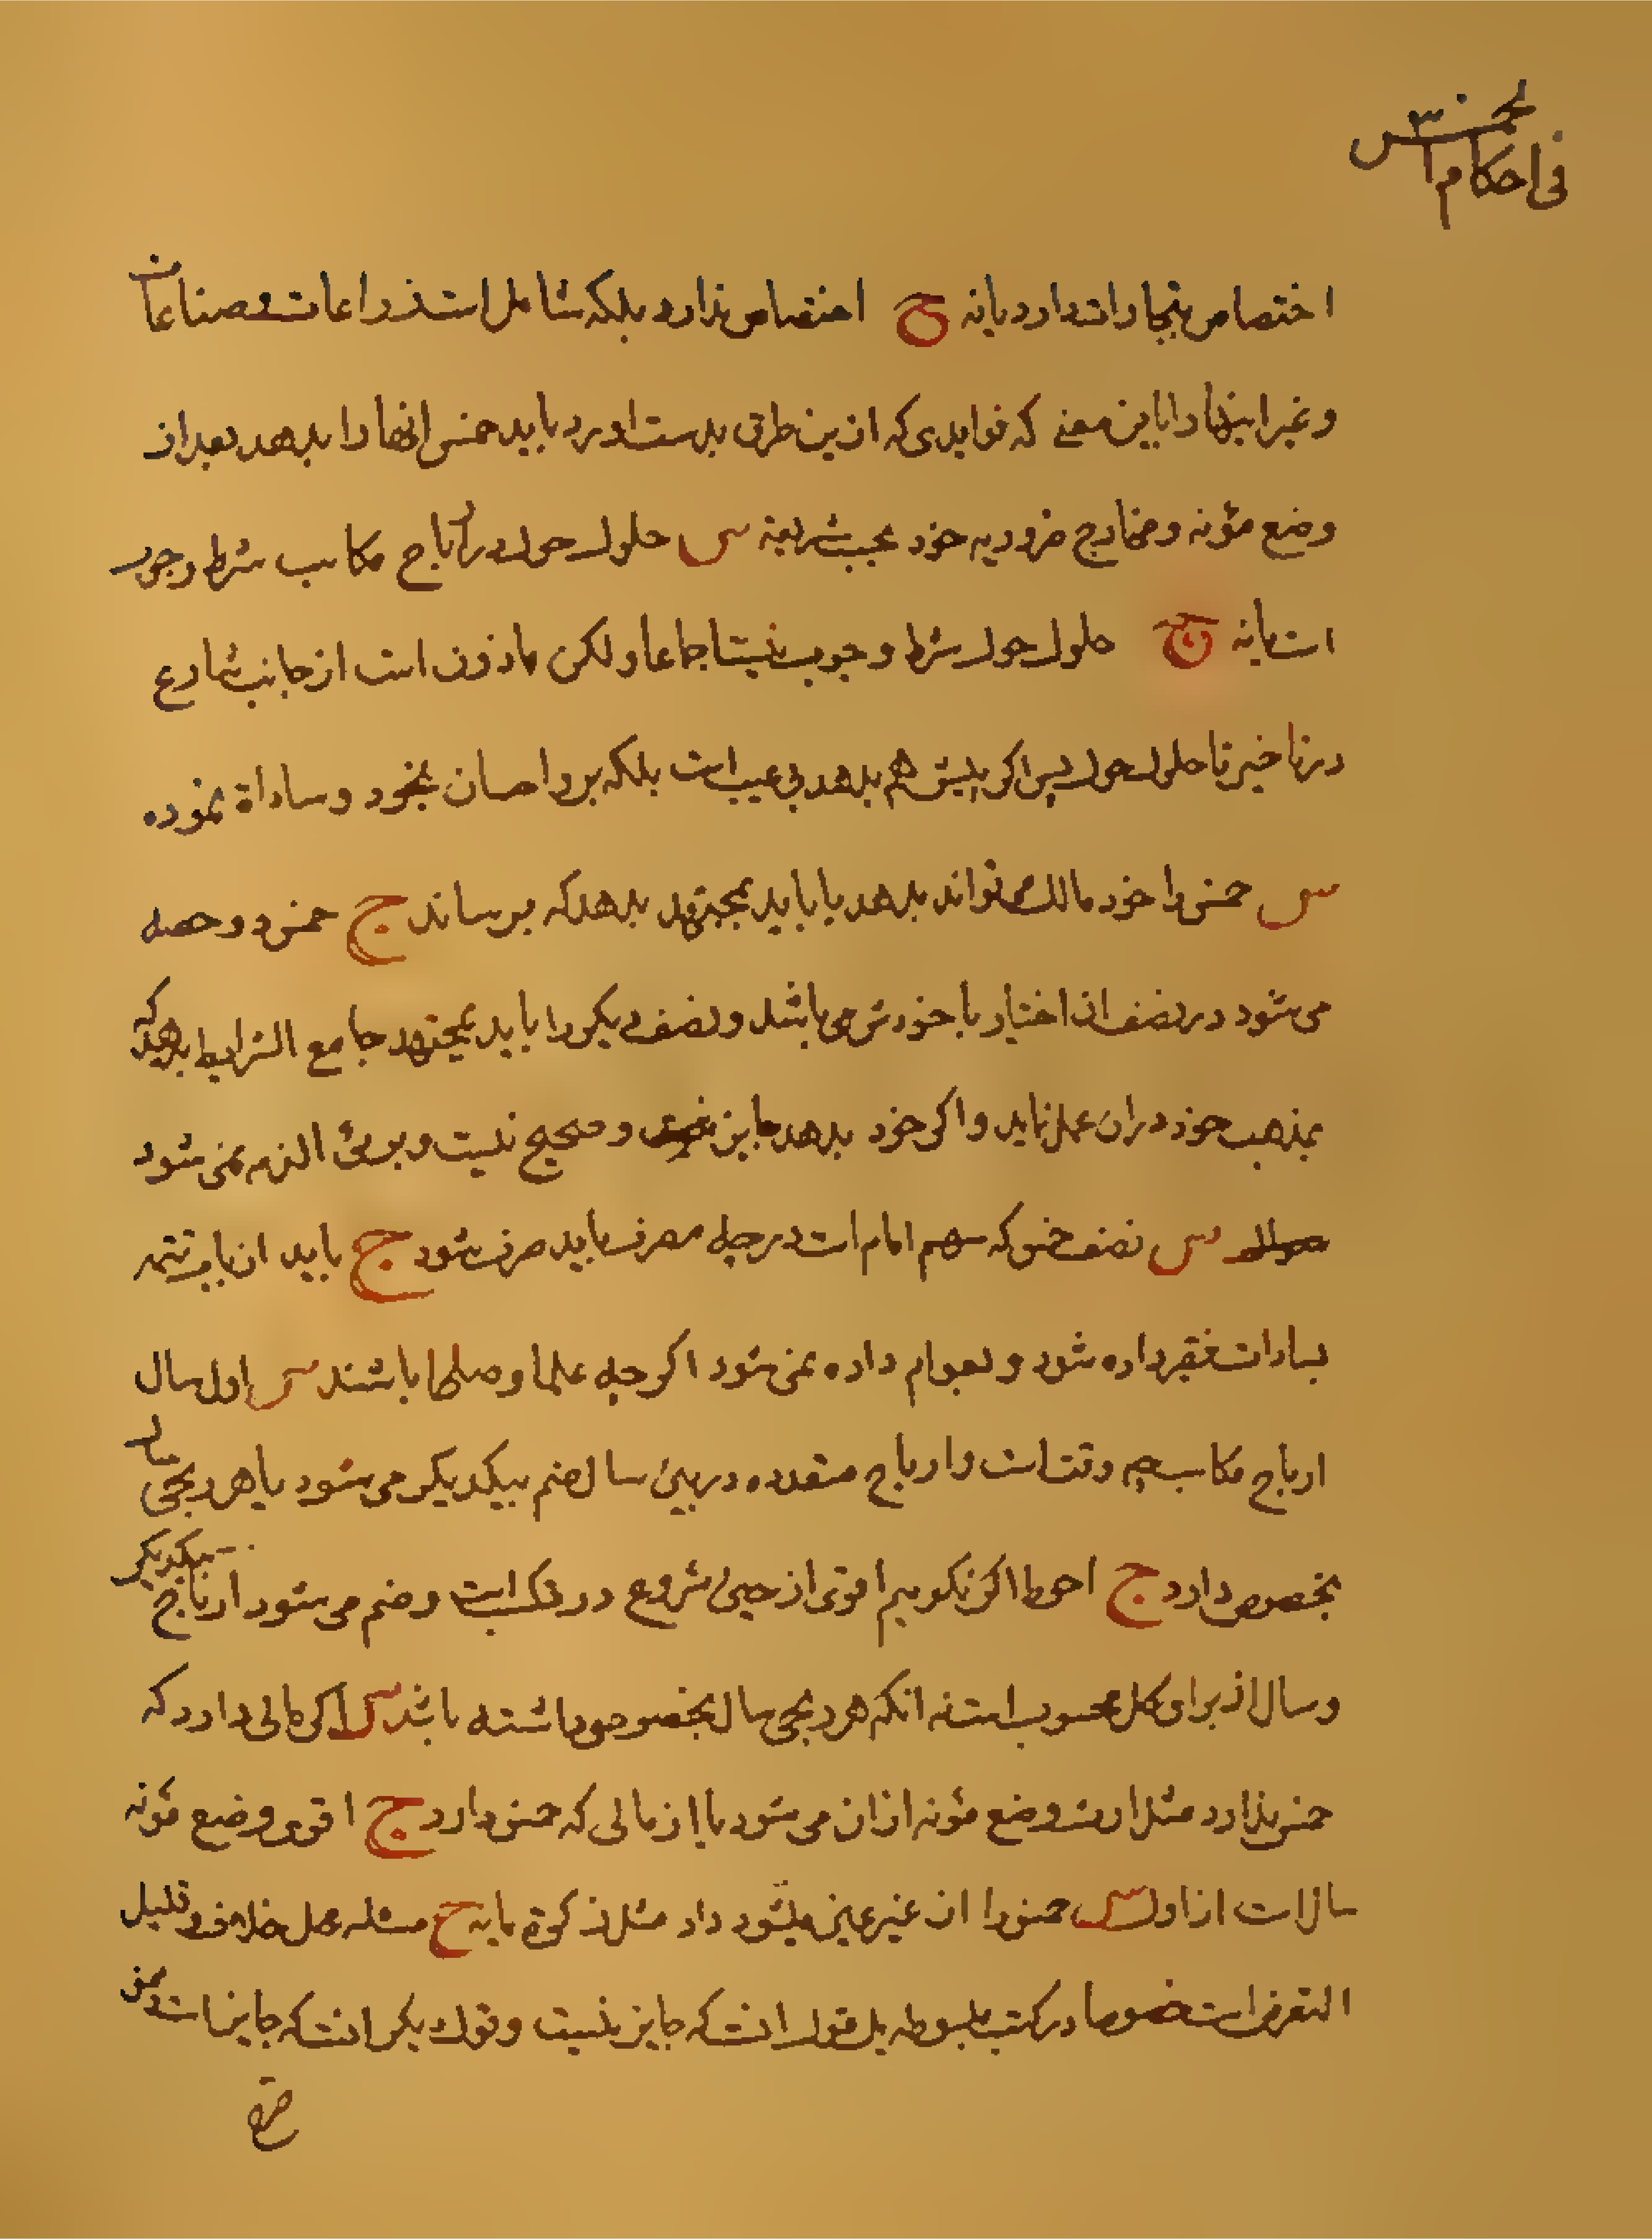 فی احکام الخمس
اختصاص بتجارات دارد یا نه ج اختصاص ندارد بلکه شامل است زراعات و صناعات
و غیر اینها را باین معنی که فوایدی که از این طرق بدست اورد باید خمس انها را بدهد بعد از
وضع مؤنه و مخارج ضروریه خود بحسب شریعة س حلول حول در ارباح مکاسب شرط وجوب
است یا نه ج حلول حول شرط وجوب نیست اجماعا و لکن ماذون است از جانب شارع
در تاخیر تا حلول حول پس اکر پیش هم بدهد بی عیب است بلکه بر و احسان بخود و سادات نموده
س خمس را خود مالک میتواند بدهد یا باید بمجتهد بدهد که برساند ج خمس دو حصه
می شود در نصف ان اختیار با خودش می باشد و نصف دیکر را باید بمجتهد جامع الشرایط بدهد که
بمذهب خود در ان عمل نماید و اکر خود بدهد جایز نیست و صحیح نیست و بری الذمه نمی شود
س نصف خمس که سهم امام است در چه مصرف باید صرف شود ج باید از باب تتمه
بسادات فقیر داده شود و بعوام داده نمی شود اکر چه علما و صلحا باشند س اول سال
ارباح مکاسب چه وقت است و ارباح متعدده در بین سال ضم بیکدیکر می شود یا هر ربحی سال
بخصوص دارد ج احوط اکر نکوییم اقوی از حین شروع در تکسب است و ضم می شود ارباح بیکدیکر
و سال از برای کل محسوب است نه انکه هر ربحی سال بخصوص داشته باشد س اکر مالی دارد که
خمس ندارد مثل ارث وضع مؤنه از ان می شود یا از مالی که خمس دارد ج اقوی وضع مؤنه
سال است از اول س خمس را از غیر عین میشود داد مثل زکوة یا نه ج مسئله محل خلاف و قلیل
التعرض است خصوصا در کتب مبسوطه یک قول انست که جایز نیست و قول دیکر انست که جایز است